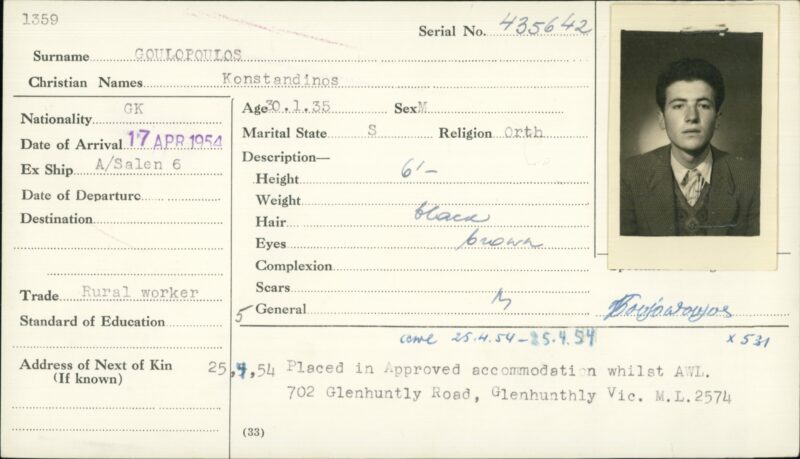 1359
Serial No. 435642
Surname GOULOPOULOS
Christian Names Konstandinos
Nationality GK
Date of Arrival 17 APR 1954
Ex Ship A/Salen 6
Date of Departure
Destination
Trade Rural worker
Standard of Education
Address of Next of Kin
(If known)
Age 30.1.35 Sex M
Marital State S Religion Orth
Description—
Height 6'-
Weight
Hair black
Eyes brown
Complexion
Scars
5 General M
25.4.54 - 25.4.54 x 531
25,4,54 Placed in Approved accommodation whilst AWL.
702 Glenhuntly Road, Glenhunthly Vic. M.L.2574
(33)